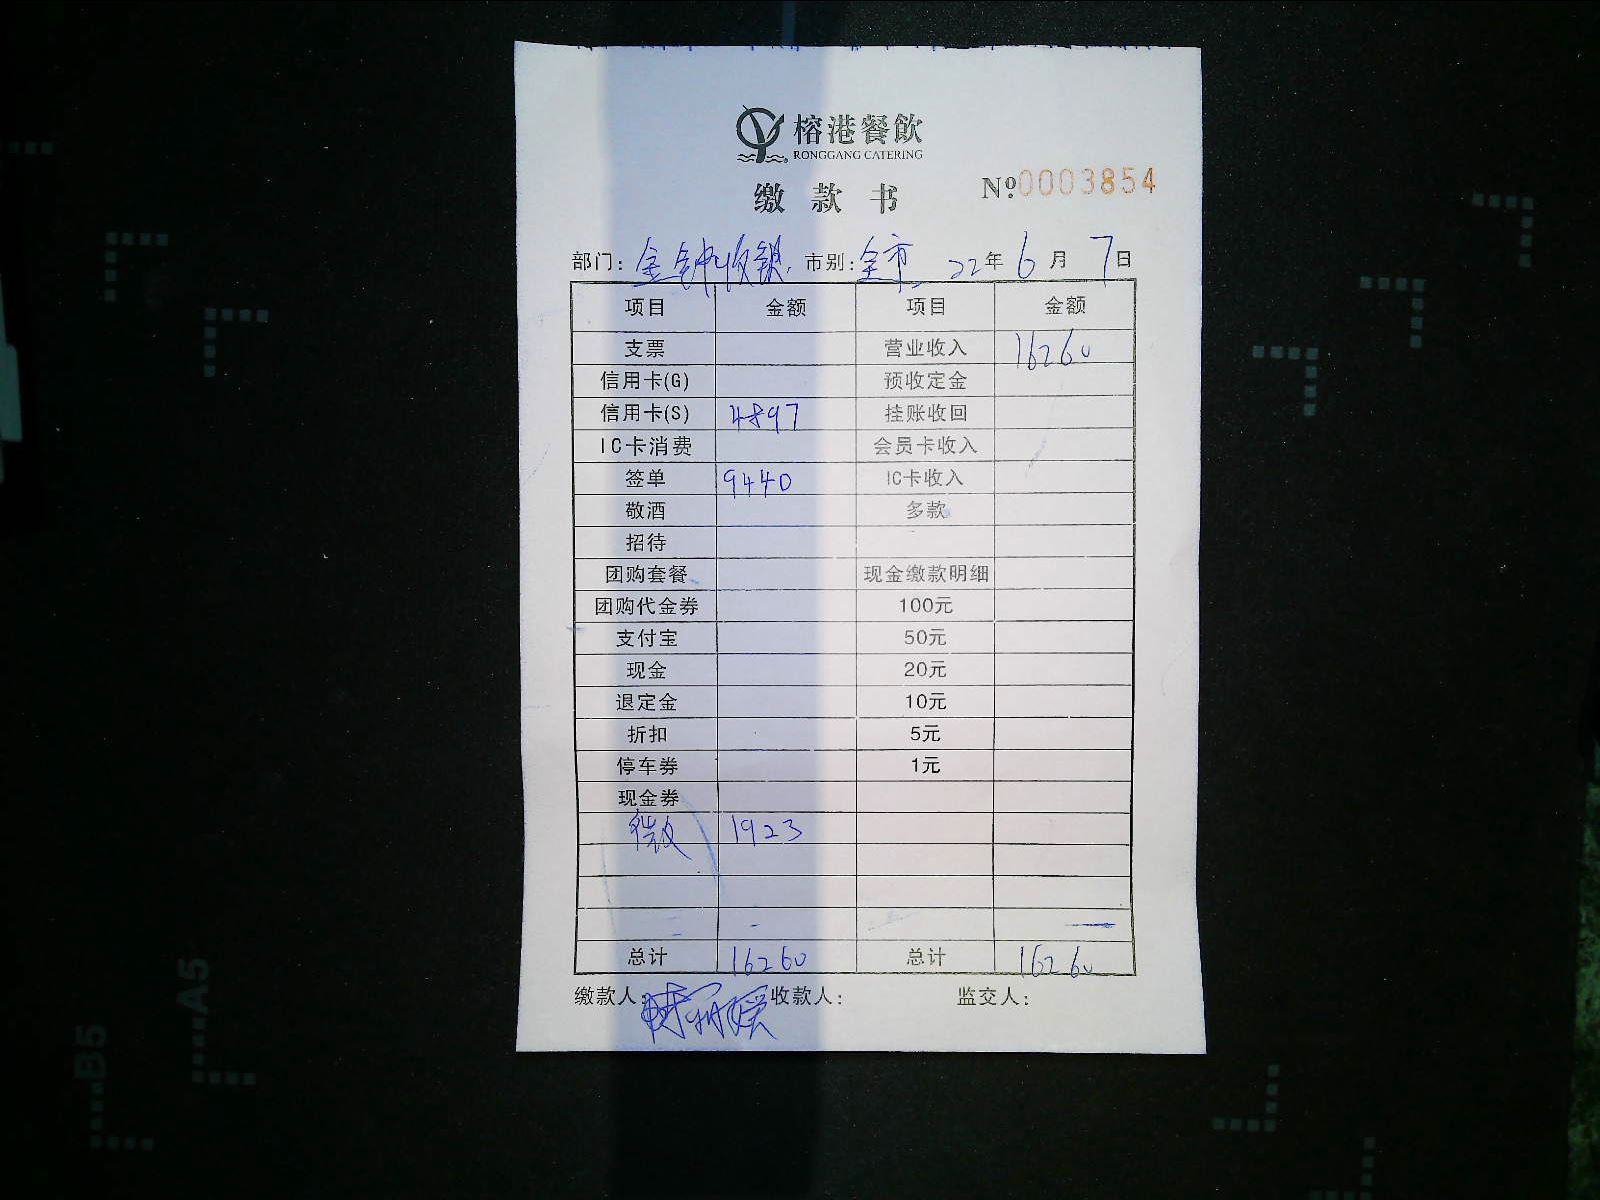 榕港餐飲
RONGGANG CATERING
缴款书 Nº 0003854
部门: 金钟收银 市别: 全市 22年6月7日
项目 金额 项目 金额
支票 营业收入 16260
信用卡(G) 预收定金
信用卡(S) 4897 挂账收回
IC卡消费 会员卡收入
签单 9440 IC卡收入
敬酒 多款
招待
团购套餐 现金缴款明细
团购代金券 100元
支付宝 50元
现金 20元
退定金 10元
折扣 5元
停车券 1元
现金券
微 1923
总计 16260 总计 16260
缴款人: 收款人: 监交人:
A5
B5